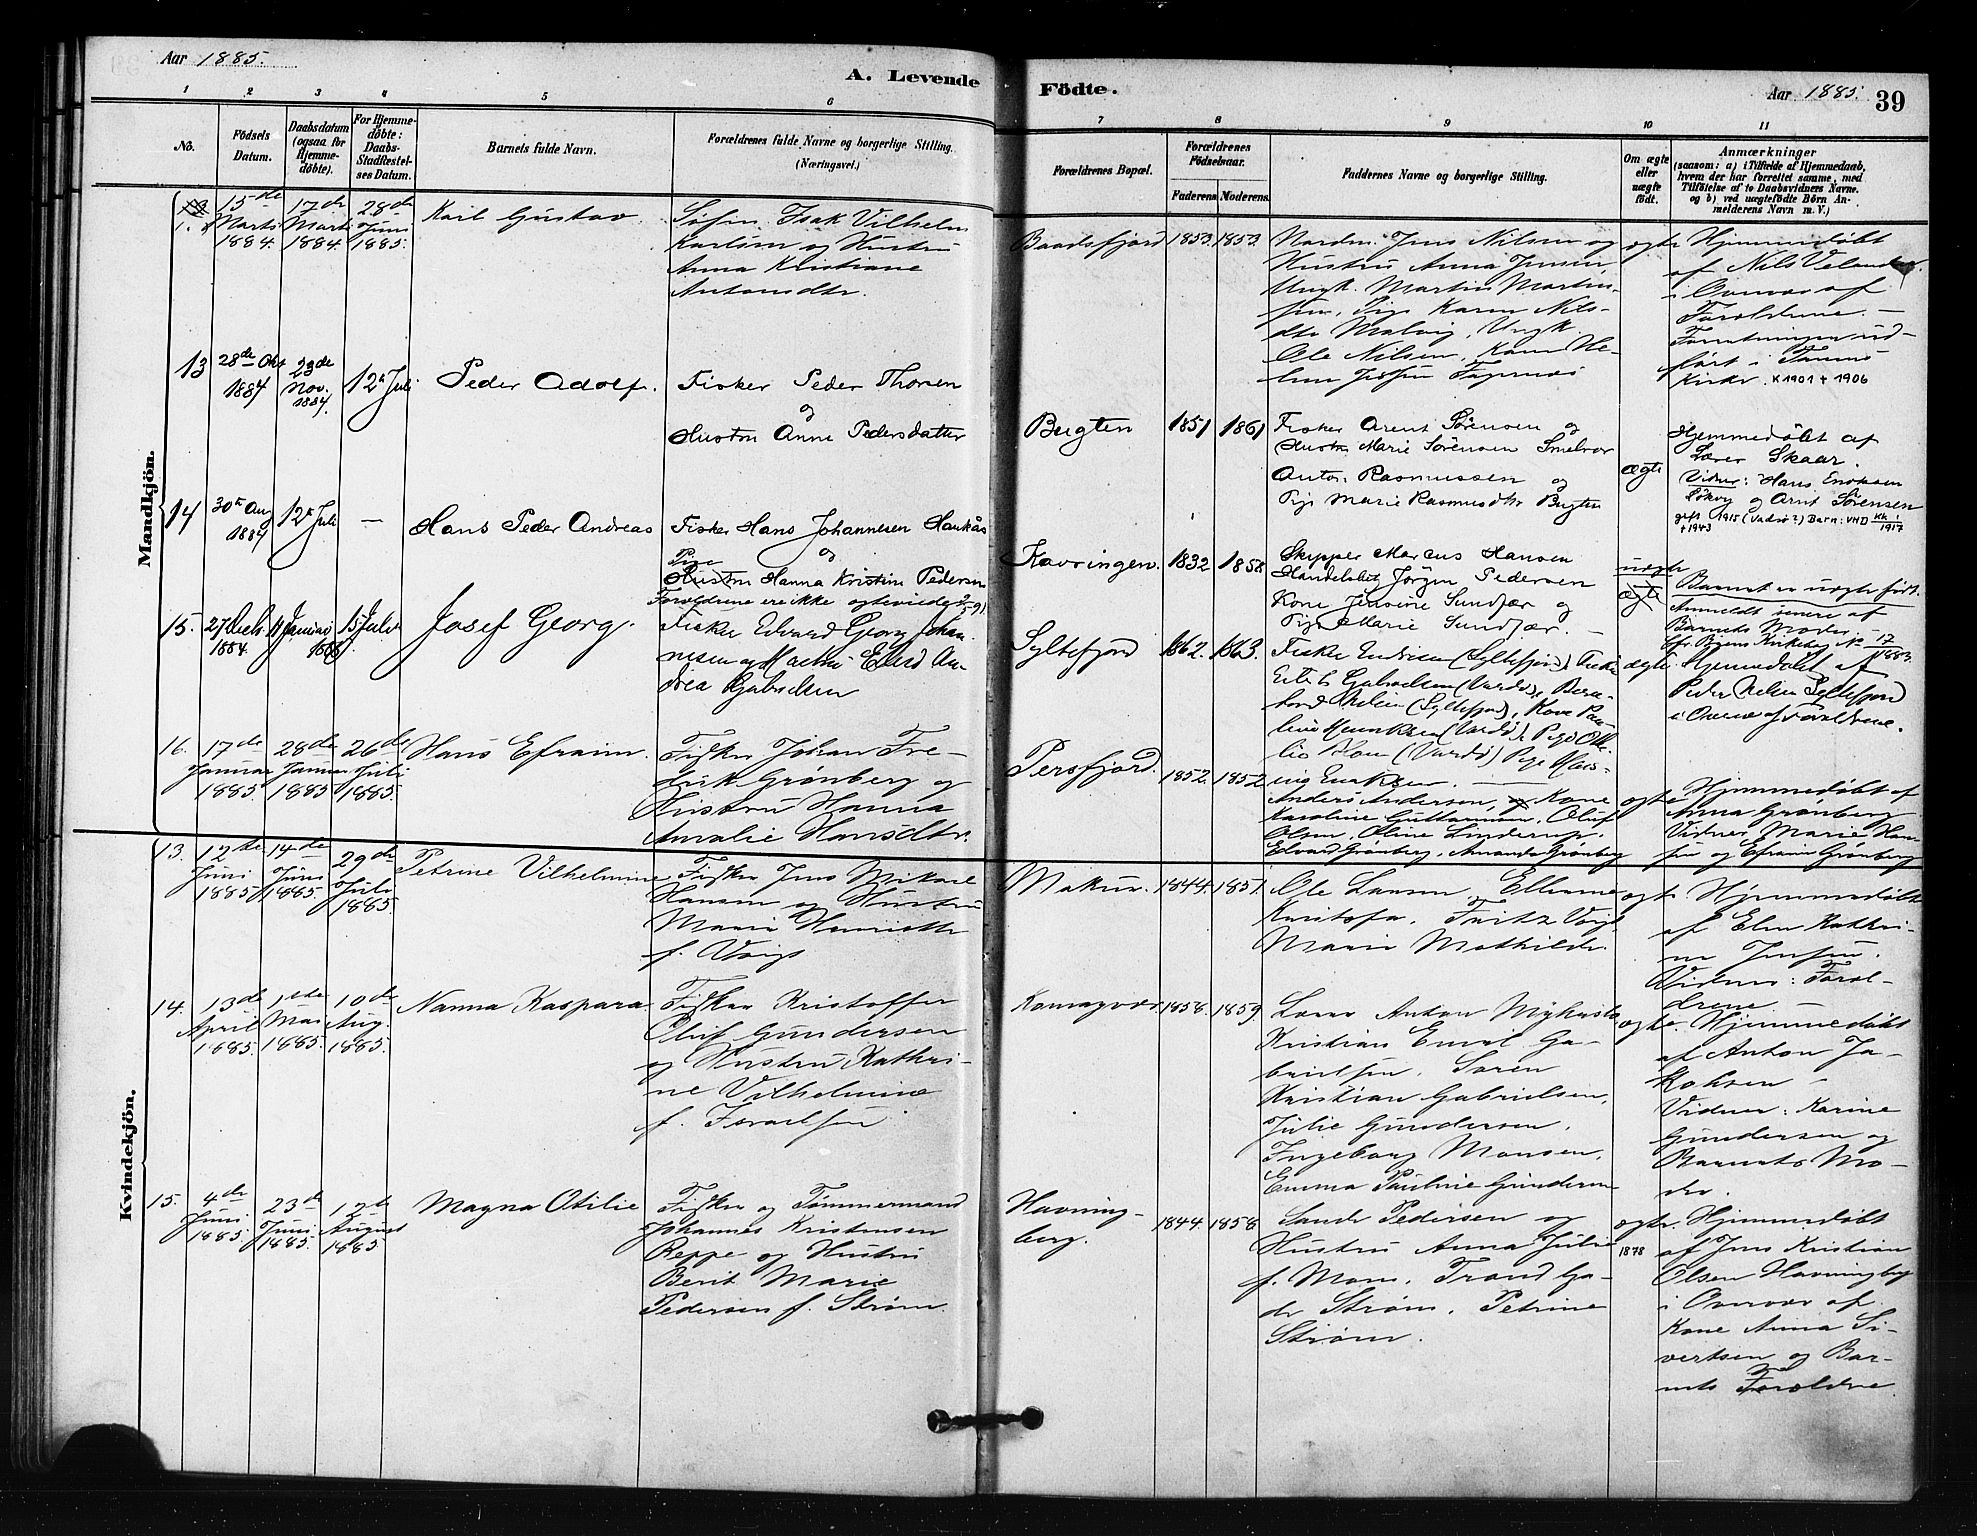 Aar 1885.
A. Levende
Födte.
Aar 1885.
39
1 2 3 4 5 6
7 8 9 10 11
No.
Födsels Datum.
Daabsdatum (ogsaa for Hjemme-döbte).
For Hjemme-döbte: Daabs-Stadfæstel-ses Datum.
Barnets fulde Navn.
Forældrenes fulde Navne og borgerlige Stilling. (Næringsvei.)
Forældrenes Bopæl.
Forældrenes Födselsaar.
Faderens Moderens
Faddernes Navne og borgerlige Stilling.
Om ægte eller uægte födt.
Anmærkninger
(saasom: a) i Tilfælde af Hjemmedaab,
hvem der har forrettet samme, med
Tilföielse af to Daabsvidners Navne.
og b) ved uægtefödte Börn An-
melderens Navn m. V.)
Mandkjön.
15de Marts 1884.
17de Marts 1884
28de Juni 1885.
Karl Gustav
Isak Vilhelm
og Hustru
Anna Kristiane
Antonsdtr.
Baadsfjord
1853. 1853.
Jens Nilsen og
Hustru Anna Jensen,
Ungk. Martin Martin-
sen, Pige Karen Nils-
dtr Malvig, Ungk.
Ole Nilsen,
ægte
Hjemmedøbt
af Nils
af
Forældrene. —
i
Kirke. K 1901 + 1906
13
28de Okt 1884
23de Nov. 1884.
12te Juli
Peder Adolf.
Fisker Peder Thorsen
og
Hustru Anne Pedersdatter
Bugten
1851 1861
Fisker Arent Sørensen og
Hustru Marie Sørensen Smelror
Anton Rasmussen og
Pige Marie Rasmusdtr Bugten
ægte
Hjemmedøbt af
Lærer Skaar.
Vidner: Hans Eriksen
og Arnt Sørensen
gift 1915 (Vadsø?) Barn: VHD KK i 1917
+ 1943
14
30te Aug 1884
12te Juli
—
Hans Peder Andreas
Fisker Hans Johannesen Haukås
og
Pige
Hustru Hanna Kristine Pedersen
Forældrene ere ikke ægteviede
Kavringen.
1832 1858
Skipper Marcus Hansen
Handelsbet Jørgen Pedersen
Kone Jensine Sundfær og
Pige Marie Sundfær. —
uægte
ægte
Barnet er uægte født.
Anmeldt senere af
Barnets Moder.
15.
27 Decb. 1884.
11 Januar 1885
15 Juli
Josef Georg.
Fisker Edvard Georg Johan-
nesen og
drea Gabrielsen
Syltefjord
1862. 1863.
Fisker (Syltefjord), Fisker
Gabrielsen (Vardø),
(Syltefjord), Kone Pau-
line Henriksen (Vardø), Pige
(Vardø) Pige
ægte.
Hjemmedøbt af
Peder Syltefjord
i Overvær af Forældrene.
16.
17de Januar 1885
28de Januar 1885
26de Juli 1885
Hans Efraim.
Fisker Johan Fre-
drik Grønberg og
Hustru Hanna
Amalie Hansdtr.
Persfjord.
1852. 1852
Anders Andersen, og Kone
Karoline Guttormsen, Oluf
Olsen, Oline
Edvard Grønberg, Amanda Grønberg
ægte
Hjemmedøbt af
Anna Grønberg
Vidner Marie Han-
sen og Efraim Grønberg
Kvindekjön.
13.
12te Juni 1885
14de Juni 1885.
29de Juli 1885.
Petrine Vilhelmine
Fisker Jens Mikael
Hansen og Hustru
Maria Henriette
f. Voigt
Makur.
1844. 1851.
Ole Larsen, Elliame
Kristofa, Fritz Voigt
Maria Mathilde.
ægte.
Hjemmedøbt
af Elen Kathri-
ne Jensen.
Vidner: Foræl-
drene —
14.
13de April 1885
1ste Mai 1885.
10de Aug. 1885.
Nanna Kaspara
Fisker Kristoffer
Oluf Gundersen
og Hustru Kathri-
ne Vilhelmine
f. Israelsen
Komagvær.
1858. 1859.
Lærer Anton
Kristian Emil Ga-
brielsen. Søren
Kristian Gabrielsen,
Julie Gundersen,
Ingeborg Monsen,
Emma Pauline Gundersen
ægte.
Hjemmedøbt
af Anton Ja-
kobsen —
Vidner: Karine
Gundersen og
Barnets Mo-
der.
15.
4de Juni 1885.
23de Juni 1885.
12te August 1885
Magna Otilie
Fisker og Tømmermand
Johannes Kristensen
Reppe og Hustru
Berit Marie
Pedersen f. Strøm.
Havning-
berg.
1844. 1858
Sande Pedersen og
Hustru Anna Julie
f. Mons, Trond Ga-
dr Strøm, Petrine
Strøm.
ægte.
1878
Hjemmedøbt
af Jens Kristian
Olsen Havningberg
i Overvær af
Kone Anna Si-
vertsen og Bar-
nets Forældre